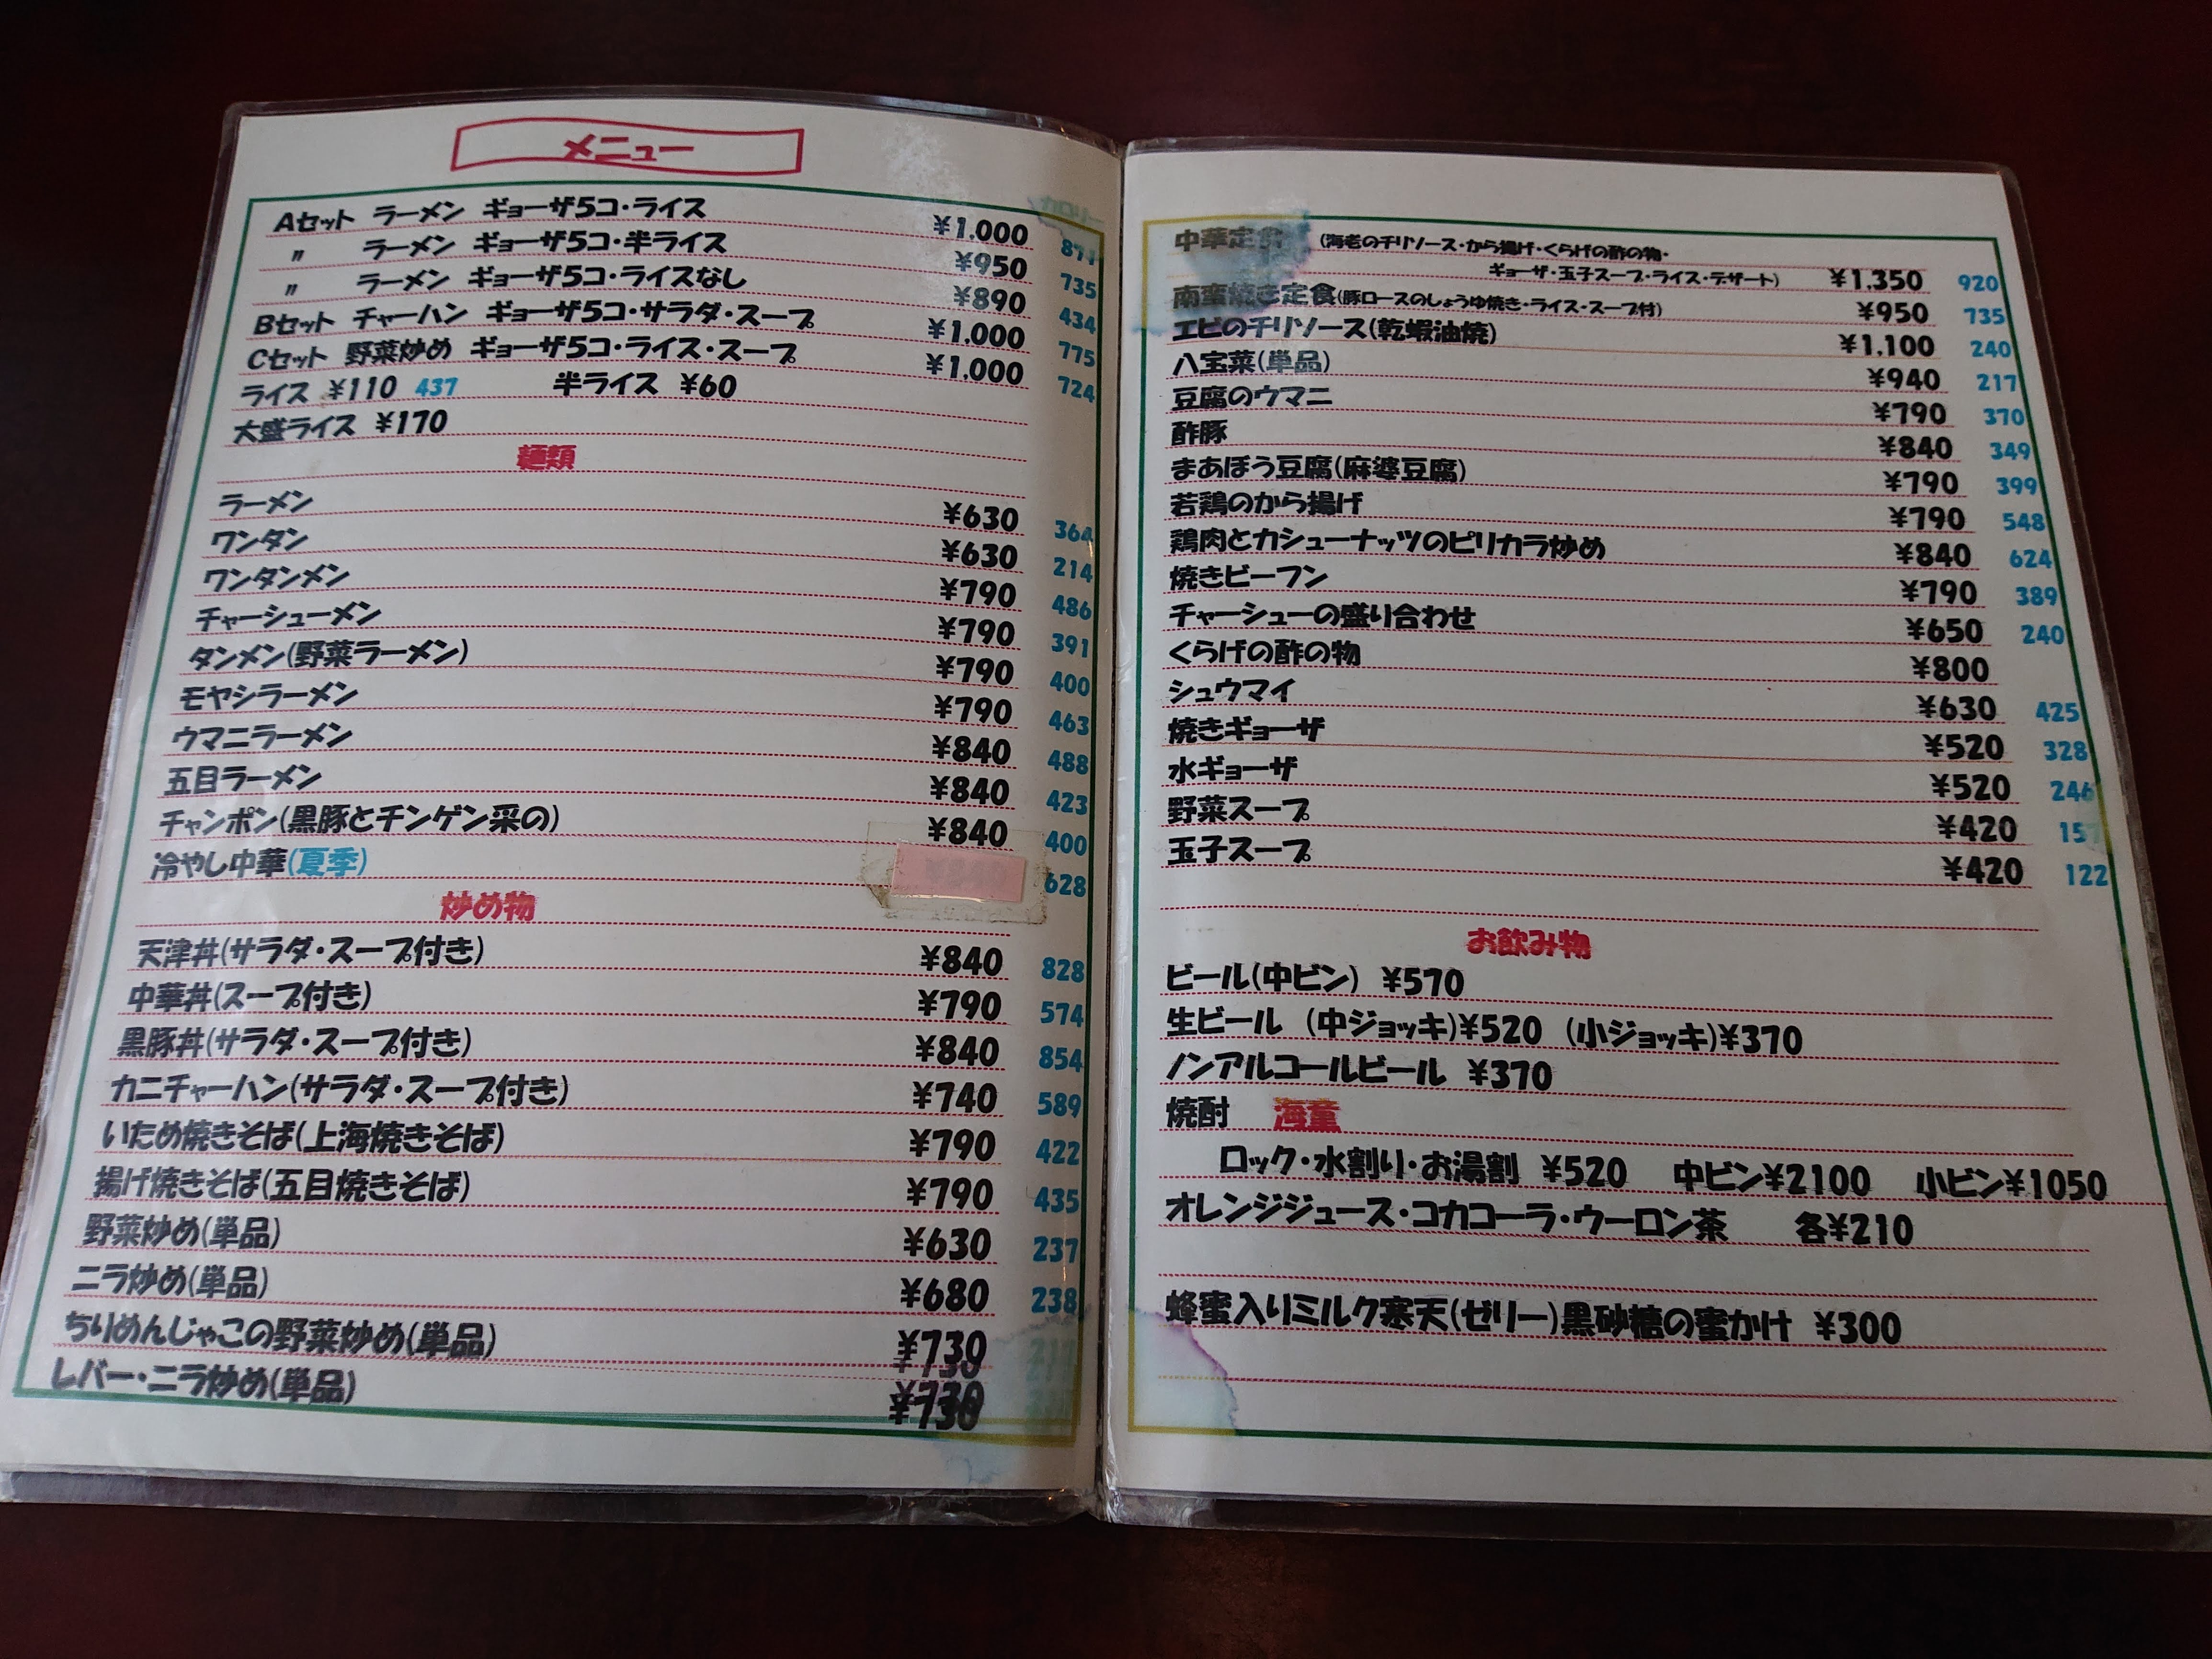 メニュー
Aセット ラーメン ギョーザ5コ・ライス ¥1.000
〃 ラーメン ギョーザ5コ・半ライス ¥950 735
〃 ラーメン ギョーザ5コ・ライスなし ¥890 434
Bセット チャーハン ギョーザ5コ・サラダ・スープ ¥1.000 775
Cセット 野菜炒め ギョーザ5コ・ライス・スープ ¥1.000 724
ライス ¥110 437 半ライス ¥60
大盛ライス ¥170
麺類
ラーメン ¥630 364
ワンタン ¥630 214
ワンタンメン ¥790 486
チャーシューメン ¥790 391
タンメン(野菜ラーメン) ¥790 400
モヤシラーメン ¥790 463
ウマニラーメン ¥840 488
五目ラーメン ¥840 423
チャンポン(黒豚とチンゲン菜の) ¥840 400
冷やし中華(夏季) 628
炒め物
天津丼(サラダ・スープ付き) ¥840 828
中華丼(スープ付き) ¥790 574
黒豚丼(サラダ・スープ付き) ¥840 854
カニチャーハン(サラダ・スープ付き) ¥740 589
いため焼きそば(上海焼きそば) ¥790 422
揚げ焼きそば(五目焼きそば) ¥790 435
野菜炒め(単品) ¥630 237
ニラ炒め(単品) ¥680 238
ちりめんじゃこの野菜炒め(単品) ¥730
レバー・ニラ炒め(単品) ¥730
中華定食 (海老のチリソース・から揚げ・くらげの酢の物・
ギョーザ・玉子スープ・ライス・デザート) ¥1.350 920
南蛮焼き定食(豚ロースのしょうゆ焼き・ライス・スープ付) ¥950 735
エビのチリソース(乾蝦油焼) ¥1,100 240
八宝菜(単品) ¥940 217
豆腐のウマニ ¥790 370
酢豚 ¥840 349
まあぼう豆腐(麻婆豆腐) ¥790 399
若鶏のから揚げ ¥790 548
鶏肉とカシューナッツのピリカラ炒め ¥840 624
焼きビーフン ¥790 389
チャーシューの盛り合わせ ¥650 240
くらげの酢の物 ¥800
シュウマイ ¥630 425
焼きギョーザ ¥520 328
水ギョーザ ¥520 246
野菜スープ ¥420
玉子スープ ¥420 122
お飲み物
ビール(中ビン) ¥570
生ビール (中ジョッキ)¥520 (小ジョッキ)¥370
ノンアルコールビール ¥370
焼酎 海童
ロック・水割り・お湯割 ¥520 中ビン¥2100 小ビン¥1050
オレンジジュース・コカコーラ・ウーロン茶 各¥210
蜂蜜入りミルク寒天(ゼリー)黒砂糖の蜜かけ ¥300